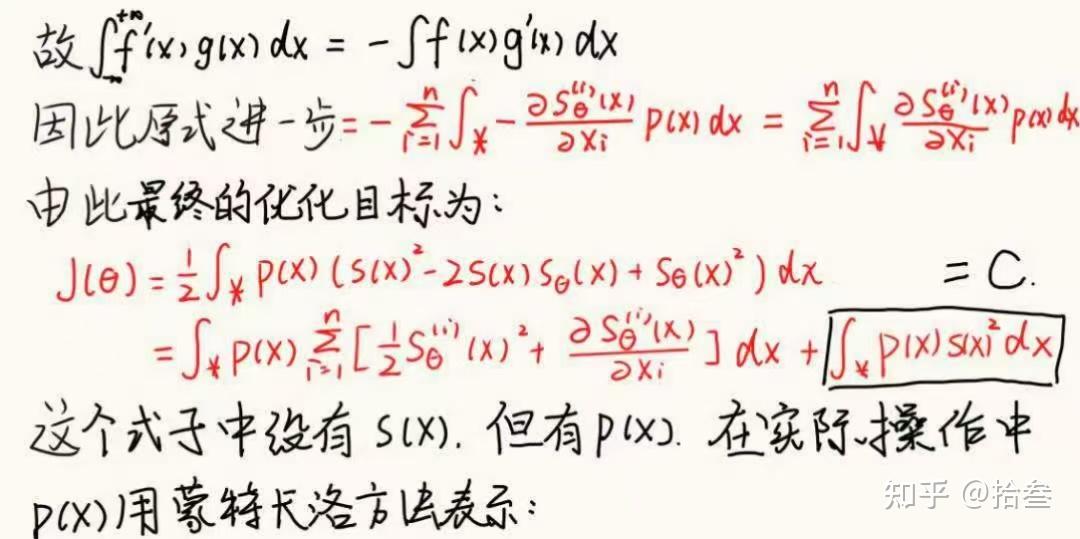 故 ∫_{-∞}^{+∞} f'(x) g(x) dx = - ∫ f(x) g'(x) dx
因此原式进一步 = - \sum_{i=1}^{n} ∫_x - \frac{∂S_θ^{(i)}(x)}{∂x_i} p(x) dx = \sum_{i=1}^{n} ∫_x \frac{∂S_θ^{(i)}(x)}{∂x_i} p(x) dx
由此最终的优化目标为:
J(θ) = \frac{1}{2} ∫_x p(x) (S(x)^2 - 2S(x) S_θ(x) + S_θ(x)^2) dx = C.
= ∫_x p(x) \sum_{i=1}^{n} [\frac{1}{2} S_θ^{(i)}(x)^2 + \frac{∂S_θ^{(i)}(x)}{∂x_i}] dx + ∫_x p(x) S(x)^2 dx
这个式子中没有 S(x). 但有 p(x). 在实际操作中
p(x) 用蒙特长洛方法表示:
知乎 @拾叁